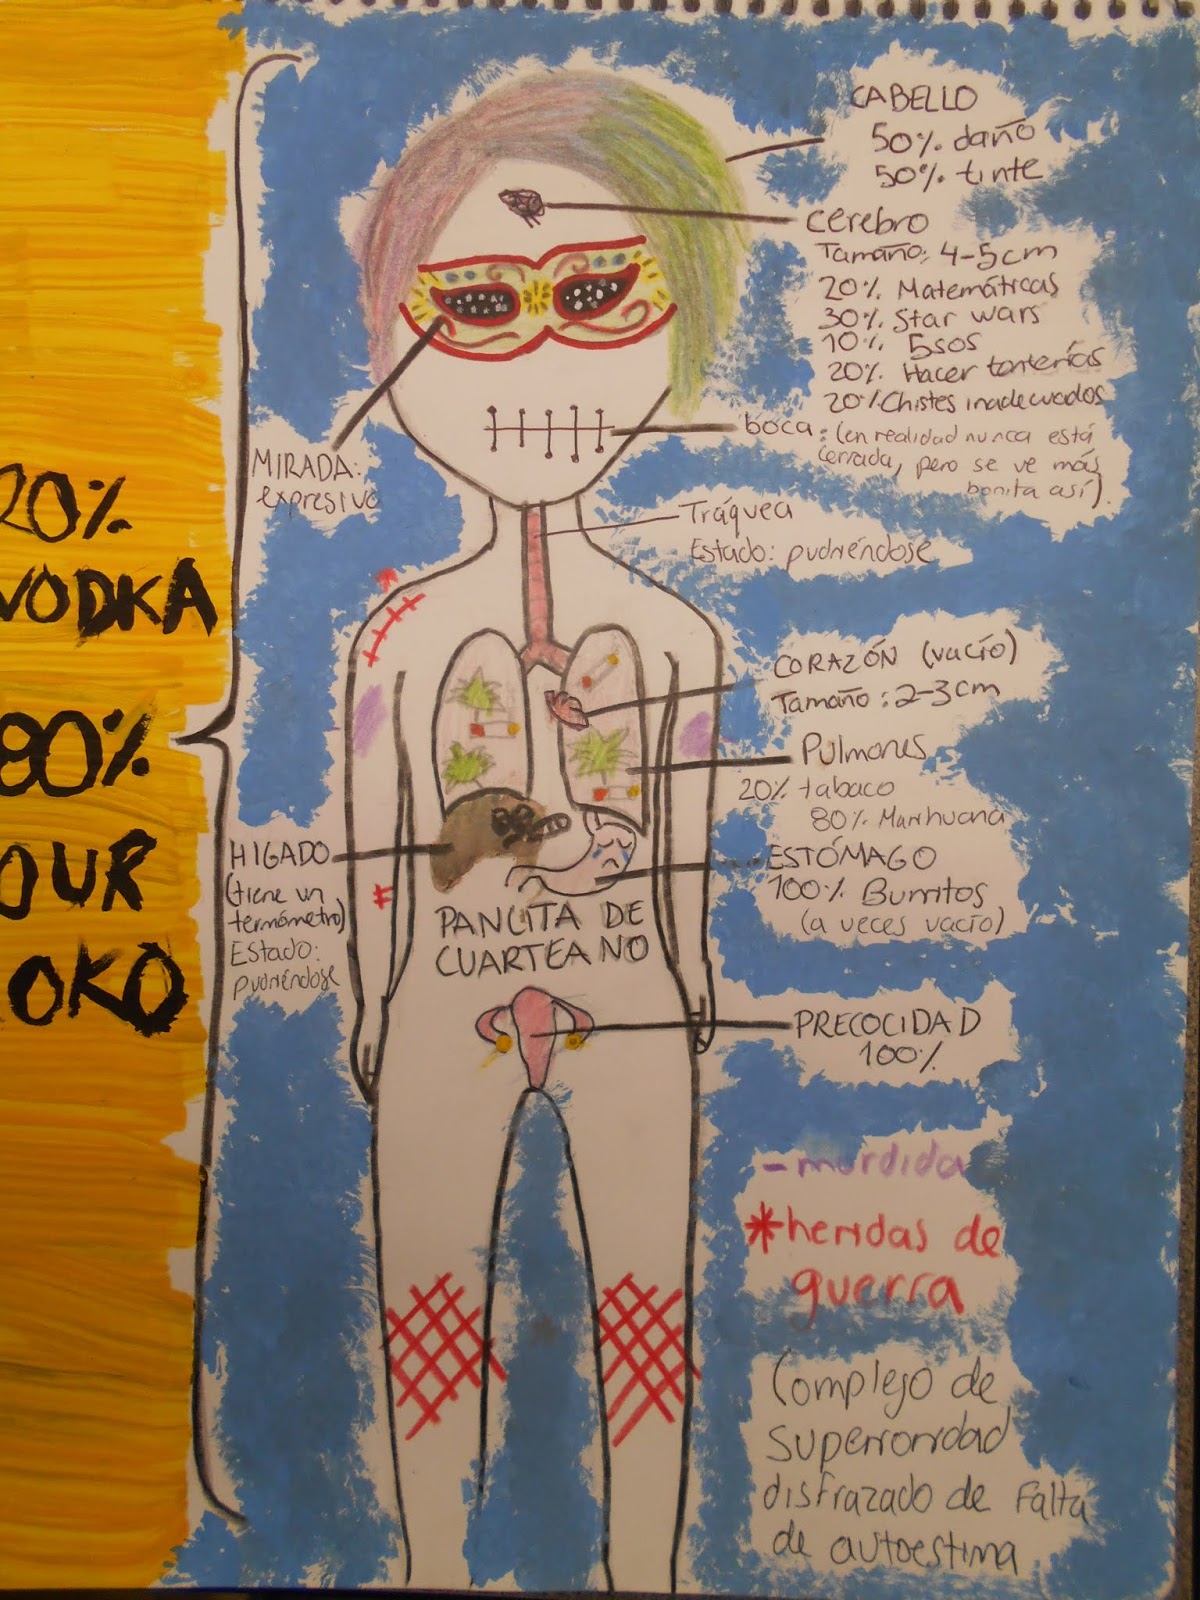 20%
VODKA
80%
OUR
OKO
CABELLO
50% daño
50% tinte
cerebro
Tamaño: 4-5cm
20% Matemáticas
30% Star wars
10% 5sos
20% Hacer tonterías
20% Chistes inadecuados
boca: (en realidad nunca está
cerrada, pero se ve más
bonita así).
MIRADA:
expresiva
Tráquea
Estado: pudriéndose
CORAZÓN (vacío)
Tamaño: 2-3cm
Pulmones
20% tabaco
80% Marihuana
HIGADO
(tiene un
termómetro)
Estado:
pudriéndose
ESTÓMAGO
100% Burritos
(a veces vacío)
PANCITA DE
CUARTEANO
PRECOCIDAD
100%
- mordida
*heridas de
guerra
Complejo de
superioridad
disfrazado de falta
de autoestima